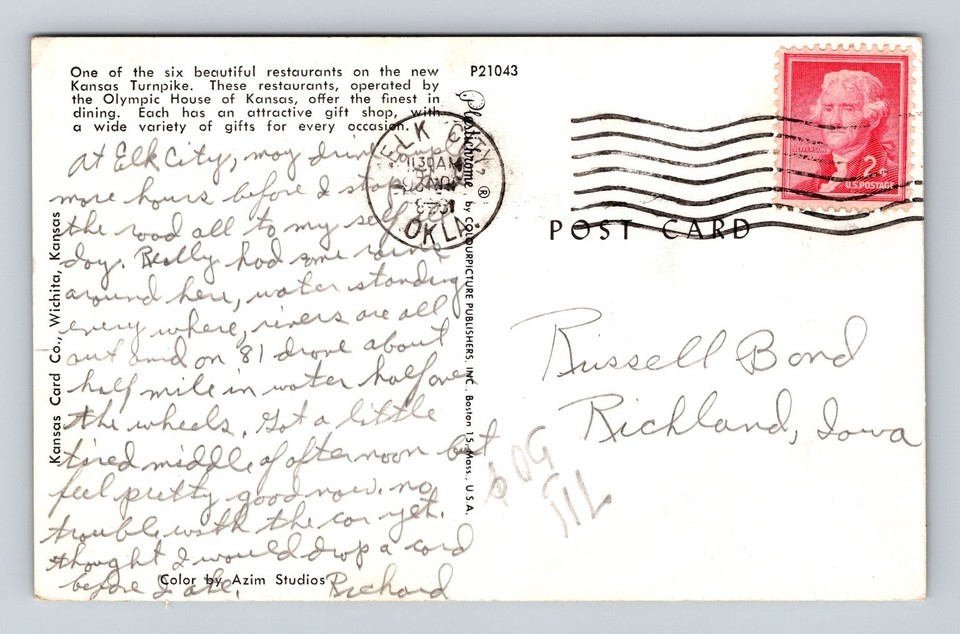 One of the six beautiful restaurants on the new
Kansas Turnpike. These restaurants, operated by
the Olympic House of Kansas, offer the finest in
dining. Each has an attractive gift shop, with
a wide variety of gifts for every occasion.
At Elk City, may drive
more hours before I stop
the road all to my self
day. Really had some rains
around here, water standing
every where, rivers are all
out and on '81 drove about
half mile in water half over
the wheels. Got a little
tired middle of afternoon but
feel pretty good now. no
trouble with the car yet.
thought I would drop a card
before I ate. Richard
Color by Azim Studios
Kansas Card Co., Wichita, Kansas
P21043
Plastichrome ® by COLOURPICTURE PUBLISHERS, INC., Boston 15, Mass., U.S.A.
ELK CITY,
1130 AM
OKLA.
JEFFERSON
2¢
U.S. POSTAGE
POST CARD
Russell Bond
Richland, Iowa
50